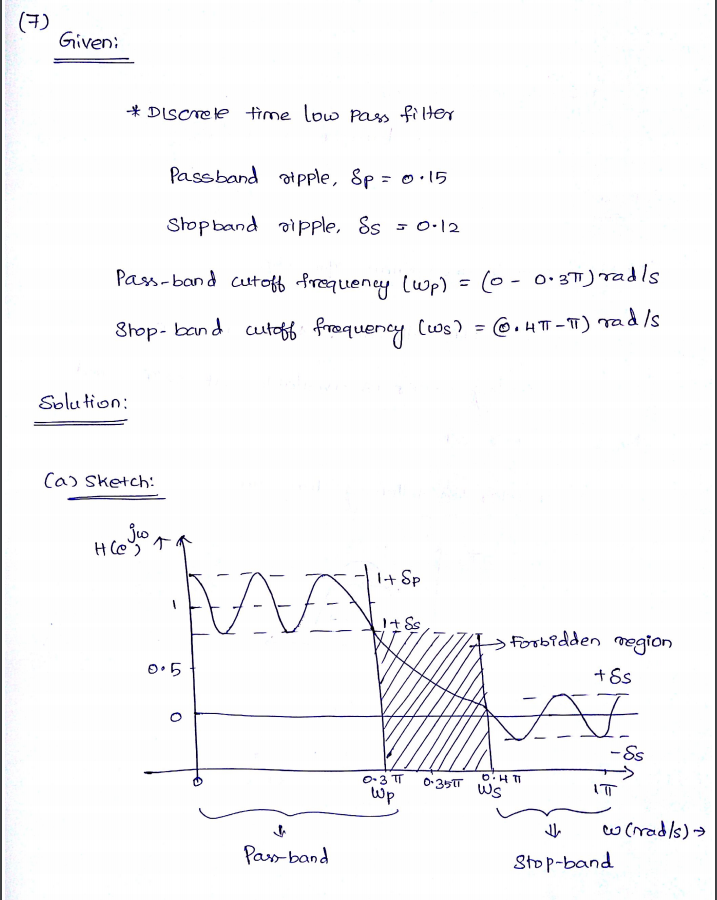 (7)
Given:
* Discrete time low pass filter
Passband ripple, δp = 0.15
Stopband ripple, δs = 0.12
Pass-band cutoff frequency (ωp) = (0 - 0.3π) rad/s
Stop-band cutoff frequency (ωs) = (0.4π-π) rad/s
Solution:
(a) Sketch:
H(e^jω) ↑
1+δp
1
1+δs
→ Forbidden region
0.5
+δs
0
-δs
0 0.3π 0.35π 0.4π 1π
ωp ωs
ω(rad/s) →
Pass-band
Stop-band